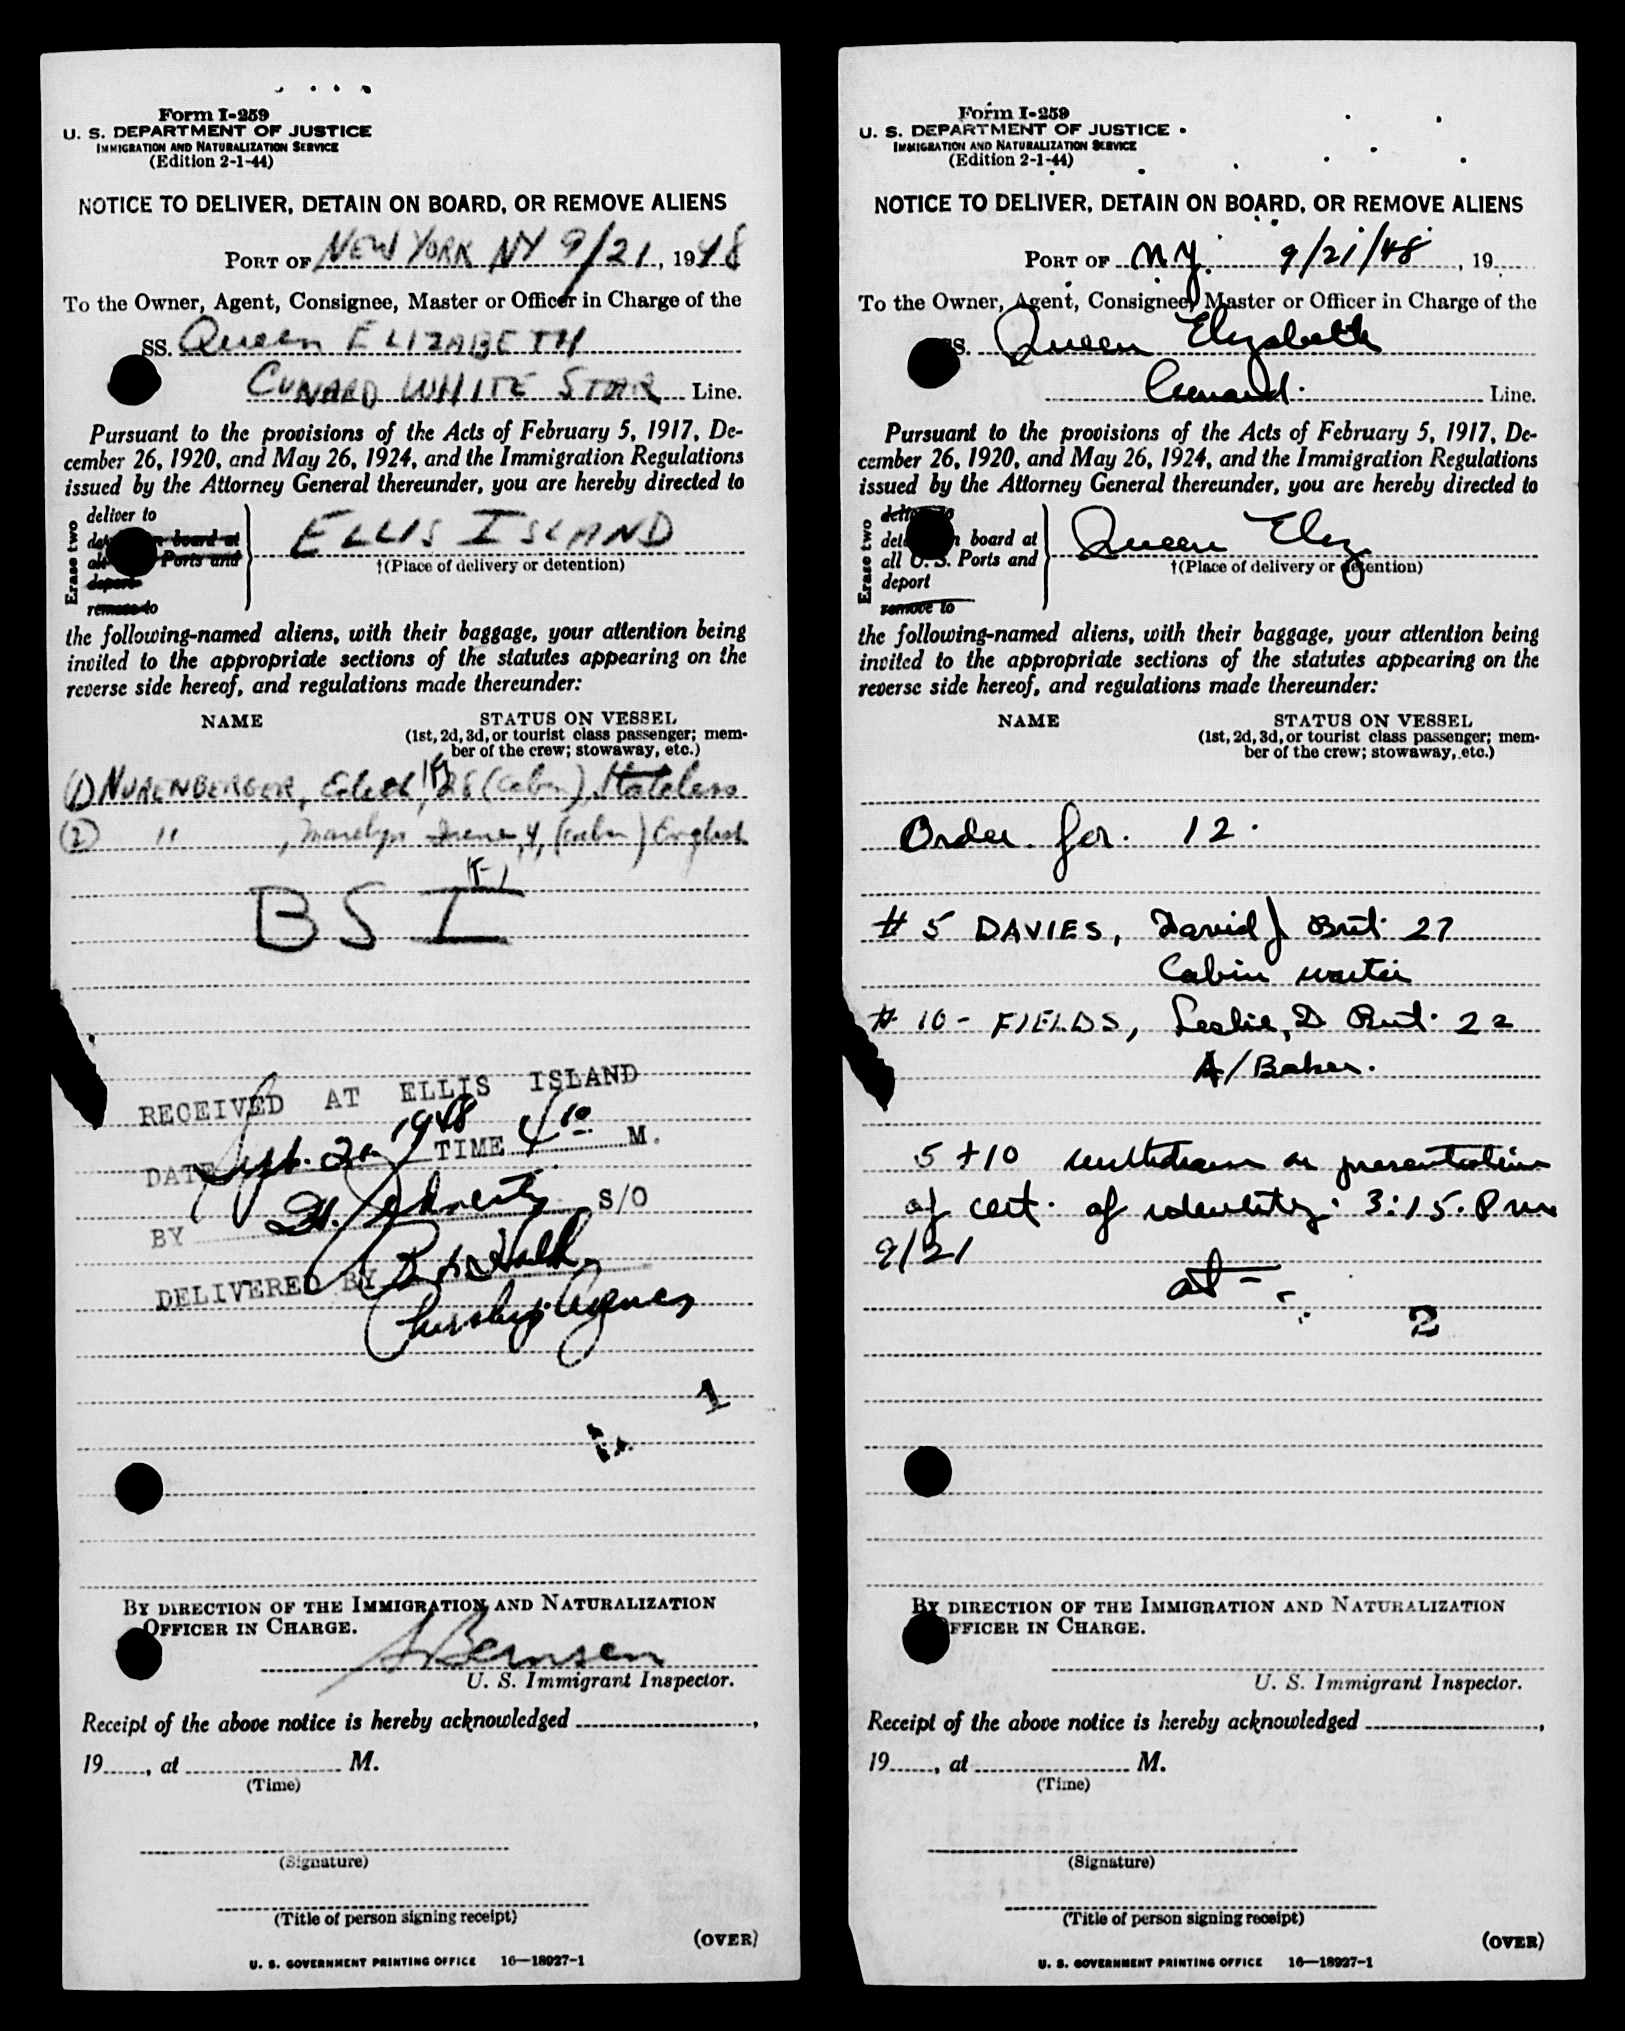 Form I-259
U. S. DEPARTMENT OF JUSTICE
IMMIGRATION AND NATURALIZATION SERVICE
(Edition 2-1-44)
NOTICE TO DELIVER, DETAIN ON BOARD, OR REMOVE ALIENS
PORT OF NEW YORK NY 9/21, 1948
To the Owner, Agent, Consignee, Master or Officer in Charge of the
SS. Queen ELIZABETH
CUNARD WHITE STAR Line.
Pursuant to the provisions of the Acts of February 5, 1917, De-
cember 26, 1920, and May 26, 1924, and the Immigration Regulations
issued by the Attorney General thereunder, you are hereby directed to
Erase two
deliver to
board at
Ports and
depart
remove to
ELLIS ISLAND
†(Place of delivery or detention)
the following-named aliens, with their baggage, your attention being
invited to the appropriate sections of the statutes appearing on the
reverse side hereof, and regulations made thereunder:
NAME STATUS ON VESSEL
(1st, 2d, 3d, or tourist class passenger; mem-
ber of the crew; stowaway, etc.)
(1) NURENBERGER, (F) 28 (Cabin) Stateless
(2) " , Marilyn Irene, 4, (cabin) English
(F)
B S I
RECEIVED AT ELLIS ISLAND
DATE Sept. 21 1948 TIME 4 10 M.
BY S/O
DELIVERED BY
1
BY DIRECTION OF THE IMMIGRATION AND NATURALIZATION
OFFICER IN CHARGE.
Bernsen
U. S. Immigrant Inspector.
Receipt of the above notice is hereby acknowledged ,
19 , at M.
(Time)
(Signature)
(Title of person signing receipt)
(OVER)
U. S. GOVERNMENT PRINTING OFFICE 16—18927-1
Form I-259
U. S. DEPARTMENT OF JUSTICE
IMMIGRATION AND NATURALIZATION SERVICE
(Edition 2-1-44)
NOTICE TO DELIVER, DETAIN ON BOARD, OR REMOVE ALIENS
PORT OF N.Y. 9/21/48, 19
To the Owner, Agent, Consignee, Master or Officer in Charge of the
SS. Queen Elizabeth
Cunard Line.
Pursuant to the provisions of the Acts of February 5, 1917, De-
cember 26, 1920, and May 26, 1924, and the Immigration Regulations
issued by the Attorney General thereunder, you are hereby directed to
Erase two
deliver to
board at
all U. S. Ports and
deport
remove to
Queen Eliz
†(Place of delivery or detention)
the following-named aliens, with their baggage, your attention being
invited to the appropriate sections of the statutes appearing on the
reverse side hereof, and regulations made thereunder:
NAME STATUS ON VESSEL
(1st, 2d, 3d, or tourist class passenger; mem-
ber of the crew; stowaway, etc.)
Order for 12.
# 5 DAVIES, David J Brit 27
Cabin waiter
# 10 - FIELDS, Leslie, D Brit. 22
A/Baker.
5 + 10 withdrawn on presentation
of cert. of identity. 3:15. Pm
9/21
2
BY DIRECTION OF THE IMMIGRATION AND NATURALIZATION
OFFICER IN CHARGE.
U. S. Immigrant Inspector.
Receipt of the above notice is hereby acknowledged ,
19 , at M.
(Time)
(Signature)
(Title of person signing receipt)
(OVER)
U. S. GOVERNMENT PRINTING OFFICE 16—18927-1